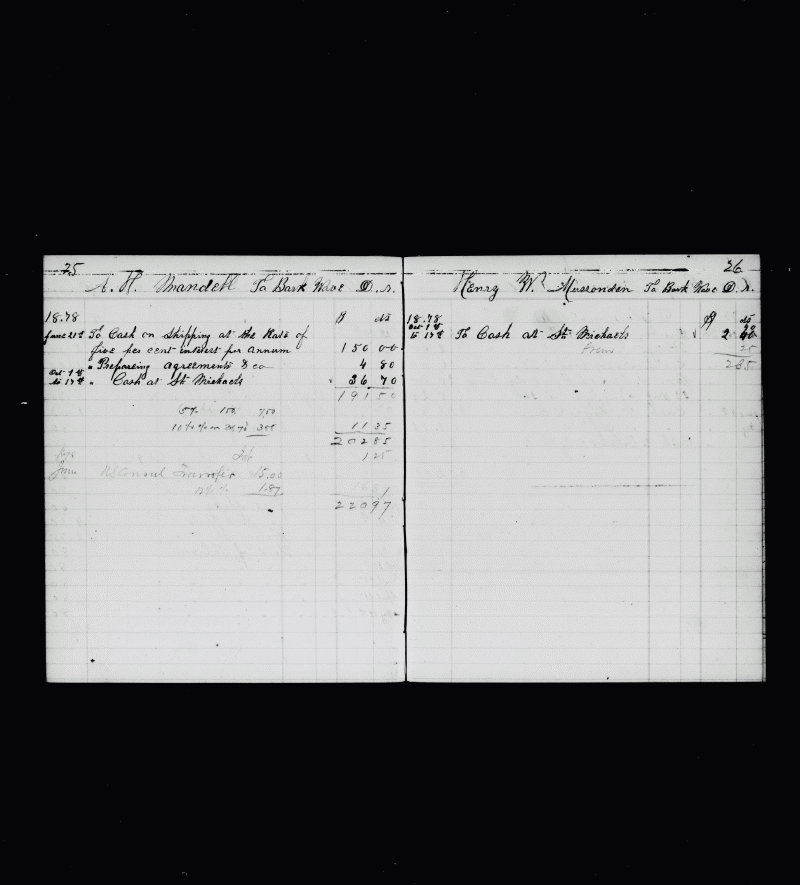 25
A. H. Mandell To Bark Wave D.r.
18.78 $ cts
June 21st To Cash on Shipping at the Rate of
five per cent interest per annum 150 00
" Preparing agreements & co 4 80
Oct 1st
to 17th " Cash at St Michaels 36 70
191 50
5% 150. 7.50
10% % on 36 70 3 85 11 35
202 85
Int 1 25
US Consul Transfer 15.00
12½ % 1.87
220 97
26
Henry W. To Bark Wave D.r.
18.78 $ cts
Oct 1st
to 17th To Cash at St Michaels 2
Prem 25
2 65